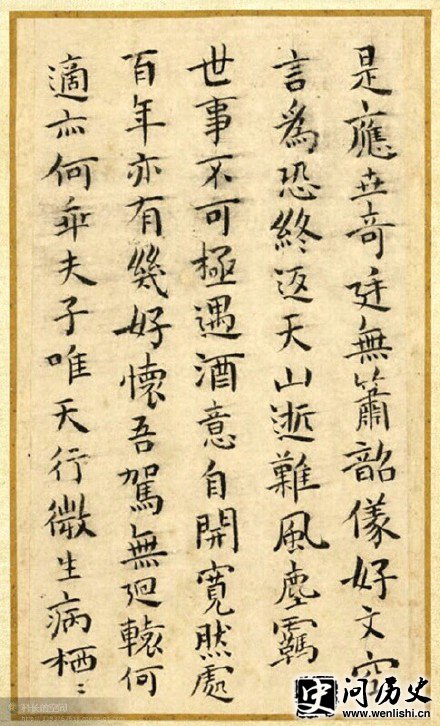 是應世奇廷無簫韶儀好文容
言為恐終返天山逝難風塵羈
世事不可極遇酒意自開寬然處
百年亦有幾好懷吾駕無迴轅何
適亦何乖夫子唯天行微生病栖〻
问历史
www.wenlishi.cn